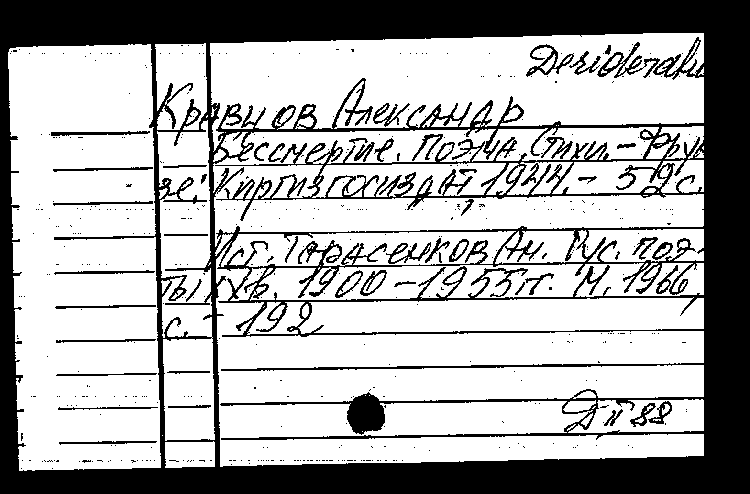 Desiderata
Кравцов Александр
Бессмертие. Поэма, Стихи. - Фрун
зе: Киргизгосиздат, 1944. - 52 с.
Ист. Тарасенков Ан. Рус. поэ-
ты XX в. 1900 - 1955 гг. М. 1966,
с. - 192
Д II 88